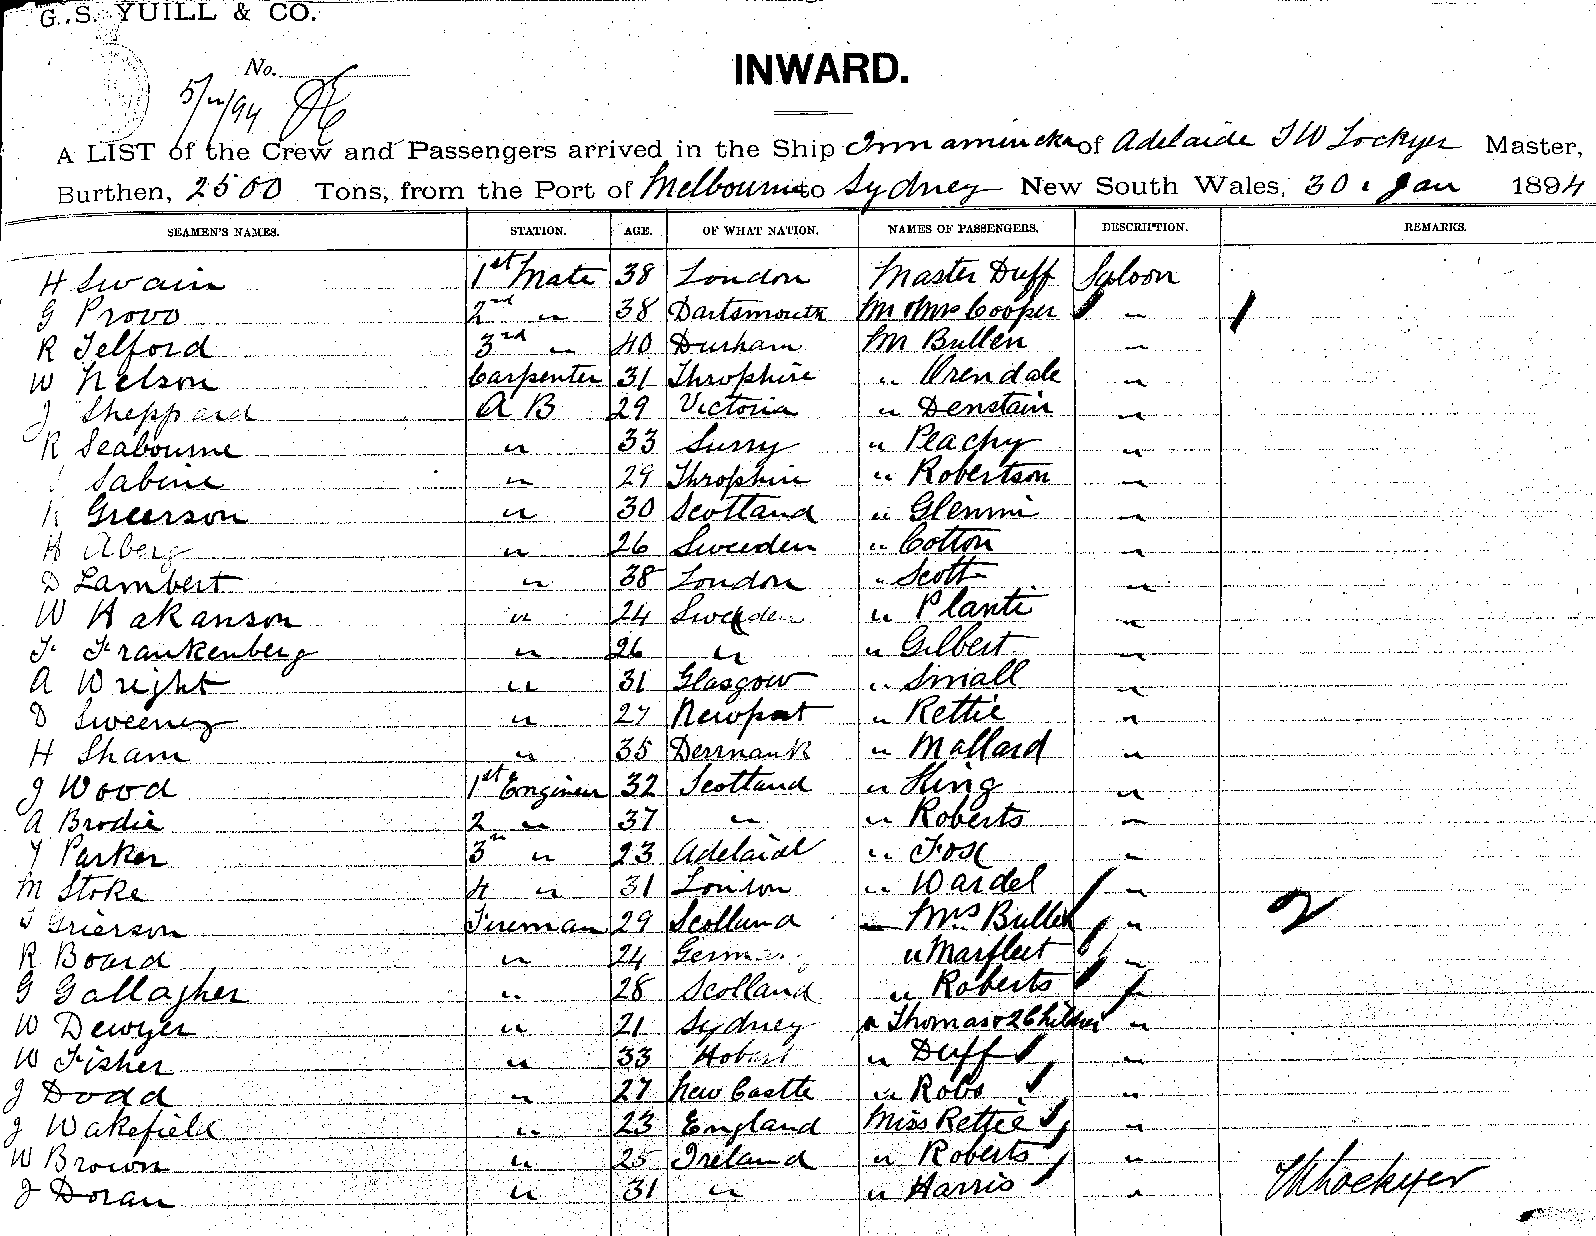 G. S. YUILL & CO.
No.
5/2/94
INWARD.
A LIST of the Crew and Passengers arrived in the Ship Innamincka of Adelaide T W Lockyer Master,
Burthen, 2500 Tons, from the Port of Melbourne to Sydney New South Wales, 30 Jan 1894
SEAMEN'S NAMES. STATION. AGE. OF WHAT NATION. NAMES OF PASSENGERS. DESCRIPTION. REMARKS.
H Swain 1st Mate 38 London Master Duff Saloon
G Provo 2nd " 38 Dartsmouth Mr & Mrs Cooper " 1
R Telford 3rd " 40 Durham Mr Bullen "
W Nelson Carpenter 31 Throphire " Orendale "
J Sheppard A B 29 Victoria " Denstain "
R Seabourne " 33 Surry " Peachy "
Sabine " 29 Throphire " Robertson "
Greerson " 30 Scotland " Glenmi "
H Aberg " 26 Sweeden " Cotton "
D Lambert " 38 London " Scott "
W Hakanson " 24 Sweden " Planti "
F. Frankenberg " 26 " " Gilbert "
A Wright " 31 Glasgow " Small "
D Sweeney " 27 Newport " Rettie "
H Sham " 35 Denmark " Mallard "
J Wood 1st Engineer 32 Scotland " King "
A Brodie 2 " 37 " " Roberts "
T Parker 3rd " 23 Adelaide " Fox "
M Stoke 4 " 31 London " Wardel "
T Grierson Fireman 29 Scotland Mrs Bullen " 2
R Board " 24 Germany " Marfleet "
G Gallagher " 28 Scotland " Roberts "
W Dewyer " 21 Sydney " Thomas & 2 Children "
W Fisher " 33 Hobart " Duff "
J Dodd " 27 New Castle " Robs "
J Wakefield " 23 England Miss Rettie "
W Brown " 25 Ireland " Roberts "
J Doran " 31 " " Harris " T W Lockyer